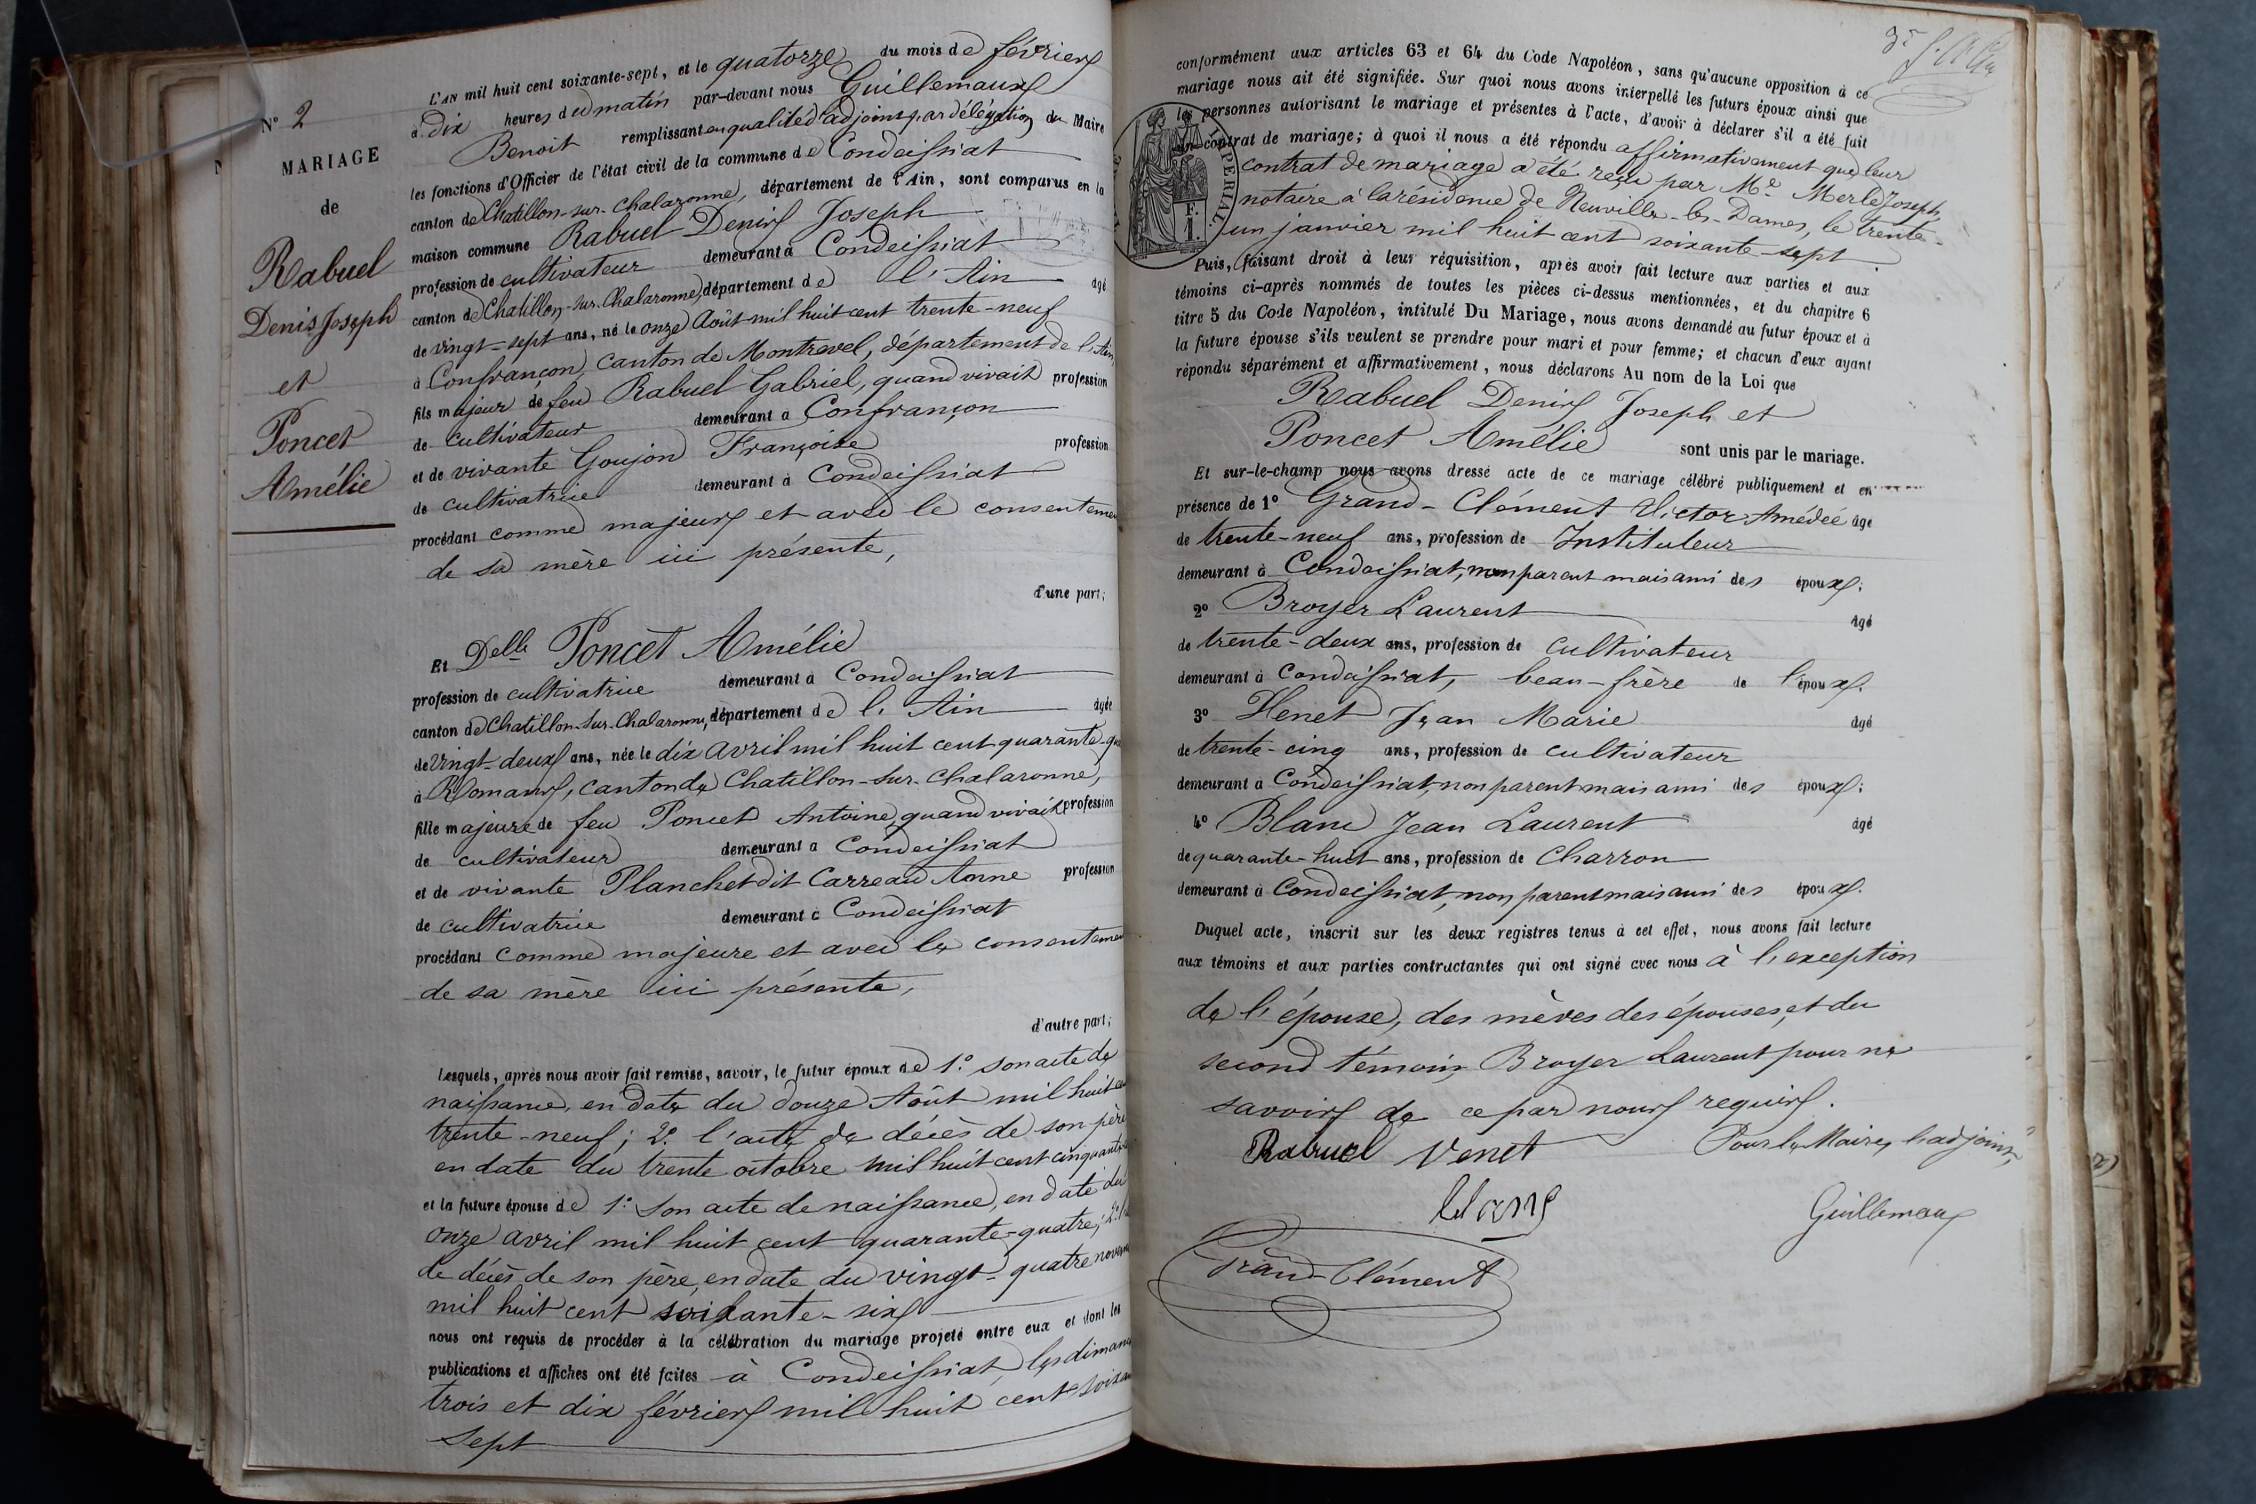 N° 2
MARIAGE
de
Rabuel
Denis Joseph
et
Poncet
Amélie
L'AN mil huit cent soixante-sept, et le quatorze du mois de février
à dix heures du matin par-devant nous Guillemaux
Benoit remplissant en qualité d'adjoint par délégation du Maire
les fonctions d'Officier de l'état civil de la commune de Condeissiat
canton de Chatillon-sur-Chalaronne, département de l'Ain, sont comparus en la
maison commune Rabuel Denis Joseph
profession de cultivateur demeurant à Condeissiat
canton de Chatillon-sur-Chalaronne, département de l'Ain âgé
de vingt-sept ans, né le onze Août mil huit cent trente-neuf
à Confrançon, canton de Montrevel, département de l'Ain,
fils majeur de feu Rabuel Gabriel, quand vivait profession
de cultivateur demeurant à Confrançon
et de vivante Goujon Françoise profession
de cultivatrice demeurant à Condeissiat
procédant comme majeur et avec le consenteme
de sa mère ici présente,
d'une part;
Et Delle Poncet Amélie
profession de cultivatrice demeurant à Condeissiat
canton de Chatillon-sur-Chalaronne, département de l'Ain âgée
de vingt-deux ans, née le dix avril mil huit cent quarante-qu
à Romans, canton de Chatillon-sur-Chalaronne,
fille majeure de feu Poncet Antoine, quand vivait profession
de cultivateur demeurant à Condeissiat
et de vivante Planchet dit Carreau Anne profession
de cultivatrice demeurant à Condeissiat
procédant comme majeure et avec le consentemen
de sa mère ici présente,
d'autre part;
Lesquels, après nous avoir fait remise, savoir, le futur époux de 1.° son acte de
naissance, en date du douze Août mil huit ce
trente-neuf; 2.° l'acte de décès de son père
en date du trente octobre mil huit cent cinquante
et la future épouse de 1.° son acte de naissance, en date du
onze avril mil huit cent quarante-quatre; 2.° l'a
de décès de son père, en date du vingt-quatre novem
mil huit cent soixante-six
nous ont requis de procéder à la célébration du mariage projeté entre eux et dont les
publications et affiches ont été faites à Condeissiat, les dimanc
trois et dix février mil huit cent soixan
sept
conformément aux articles 63 et 64 du Code Napoléon, sans qu'aucune opposition à ce
mariage nous ait été signifiée. Sur quoi nous avons interpellé les futurs époux ainsi que
les personnes autorisant le mariage et présentes à l'acte, d'avoir à déclarer s'il a été fait
un contrat de mariage; à quoi il nous a été répondu affirmativement que leur
contrat de mariage a été reçu par Me Merle Joseph,
notaire à la résidence de Neuville-les-Dames, le trente-
un janvier mil huit cent soixante-sept.
IMPERIAL.
F.
1.
Puis, faisant droit à leur réquisition, après avoir fait lecture aux parties et aux
témoins ci-après nommés de toutes les pièces ci-dessus mentionnées, et du chapitre 6
titre 5 du Code Napoléon, intitulé Du Mariage, nous avons demandé au futur époux et à
la future épouse s'ils veulent se prendre pour mari et pour femme; et chacun d'eux ayant
répondu séparément et affirmativement, nous déclarons Au nom de la Loi que
Rabuel Denis Joseph et
Poncet Amélie sont unis par le mariage.
Et sur-le-champ nous avons dressé acte de ce mariage célébré publiquement et en
présence de 1° Grand-Clément Victor Amédée âgé
de trente-neuf ans, profession de Instituteur
demeurant à Condeissiat, non parent mais ami des époux;
2° Broyer Laurent âgé
de trente-deux ans, profession de cultivateur
demeurant à Condeissiat, beau-frère de l'époux.
3° Venet Jean Marie âgé
de trente-cinq ans, profession de cultivateur
demeurant à Condeissiat, non parent mais ami des époux;
4° Blanc Jean Laurent âgé
de quarante-huit ans, profession de Charron
demeurant à Condeissiat, non parent mais ami des époux.
Duquel acte, inscrit sur les deux registres tenus à cet effet, nous avons fait lecture
aux témoins et aux parties contractantes qui ont signé avec nous à l'exception
de l'épouse, des mères des épouses, et du
second témoin Broyer Laurent pour ne
savoir de ce par nous requis.
Rabuel Venet Pour le Maire, l'adjoint,
Blanc Guillemaux
Grand-Clément